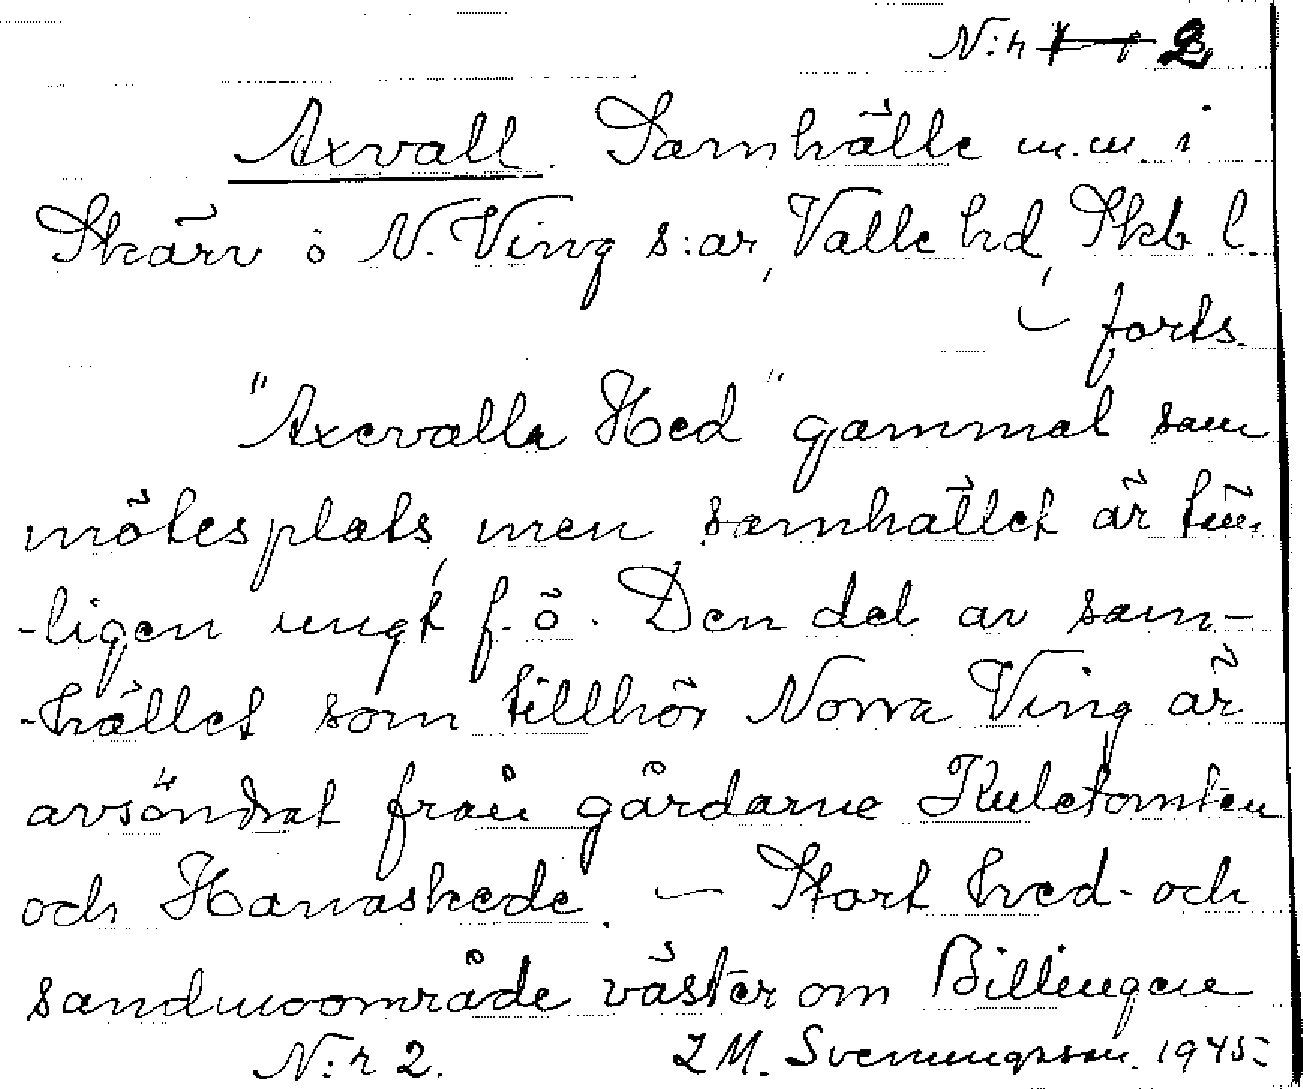 N:r 2
Axvall. Samhälle m.m. i
Skärv o N. Ving s:ar, Valle hd, Skb l.
– forts.
"Axevalla Hed" gammal sam
mötesplats, men samhället är täm
-ligen ungt f. ö. Den del av sam-
-hället som tillhör Norra Ving är
avsöndrat från gårdarne Kuletomten
och Hanaskede. – Stort hed- och
sandmoområde väster om Billingen
N:r 2. Z.M. Svenungsson. 1945